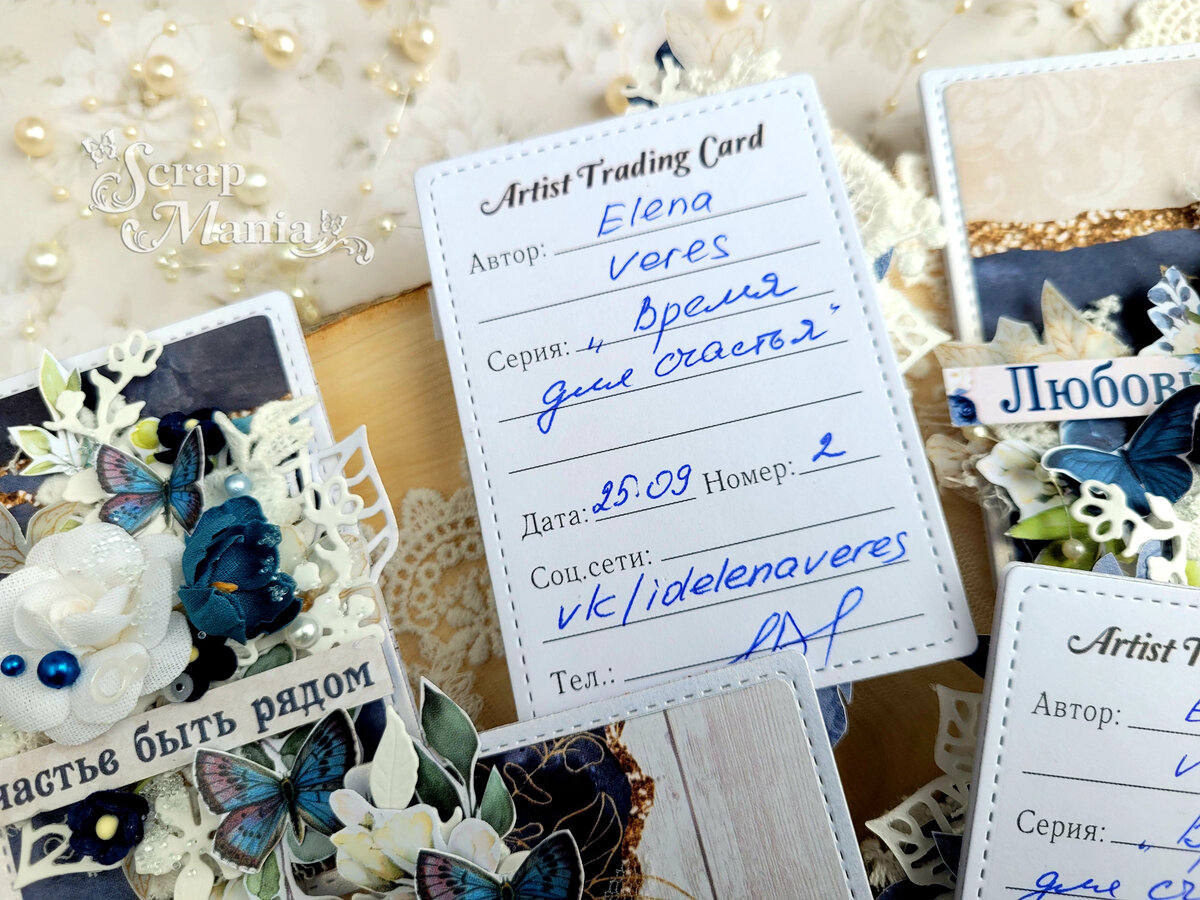 Scrap
Mania
Artist Trading Card
Автор: Elena
veres
Серия: „ Время
для счастья"
Дата: 25.09 Номер: 2
Соц.сети:
vk/idelenaveres
Тел.:
Любовь
частье быть рядом
Artist T
Автор: E
v
Серия: „ В
для сч